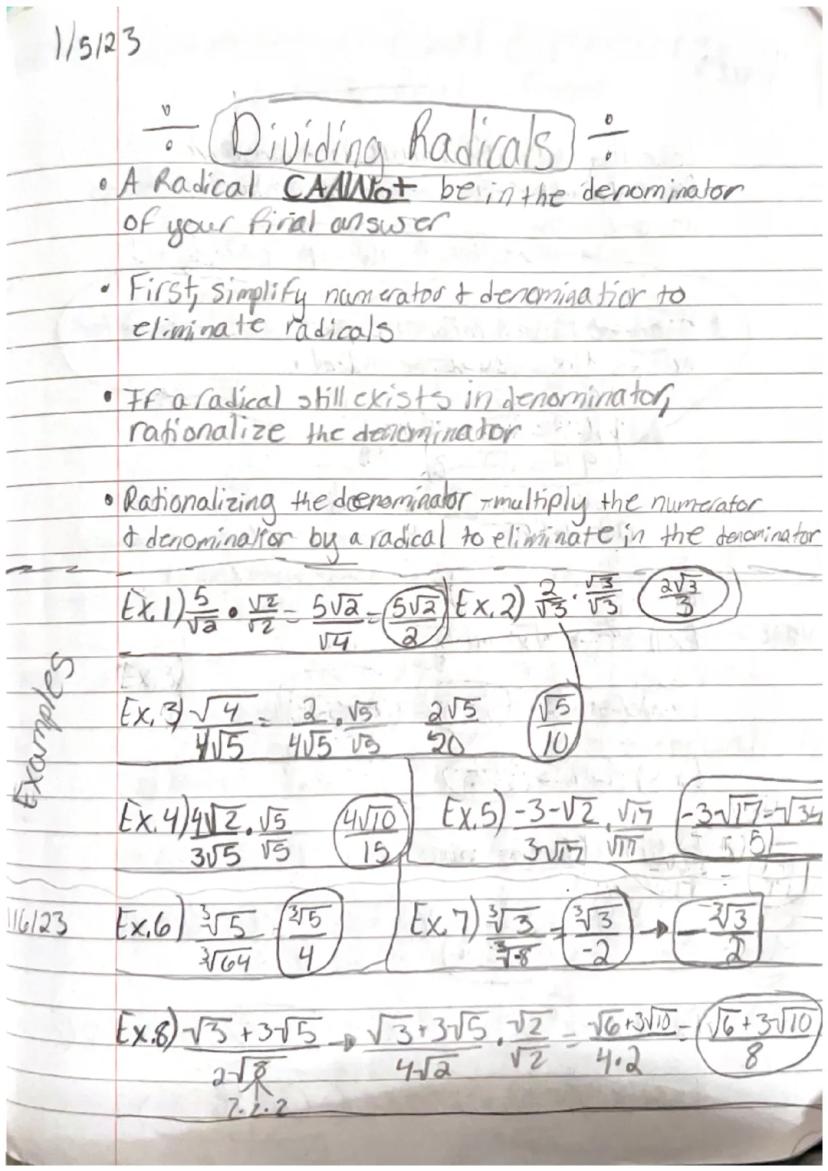 1/5/23
÷ Dividing Radicals ÷
• A Radical CANNot be in the denominator
of your final answer
• First, simplify numerator & denominatior to
eliminate radicals
• If a radical still exists in denominator,
rationalize the denominator
• Rationalizing the deenominator - multiply the numerator
& denominator by a radical to eliminate in the denominator
Examples
Ex. 1) 5/√2 • √2/√2 = 5√2/√4 = 5√2/2
Ex. 2) 2/√3 · √3/√3 2√3/3
Ex. 3) √4/4√5 = 2/4√5 · √5/√5 2√5/20 √5/10
Ex. 4) 4√2/3√5 · √5/√5 4√10/15
Ex. 5) -3-√2/3√17 · √17/√17 -3√17-√34/51
1/6/23
Ex. 6) ∛5/∛64 = ∛5/4
Ex. 7) ∛3/∛-8 = ∛3/-2 → -∛3/2
Ex. 8) √3+3√5/2√8 → √3+3√5/4√2 · √2/√2 = √6+3√10/4·2 = √6+3√10/8
2·2·2